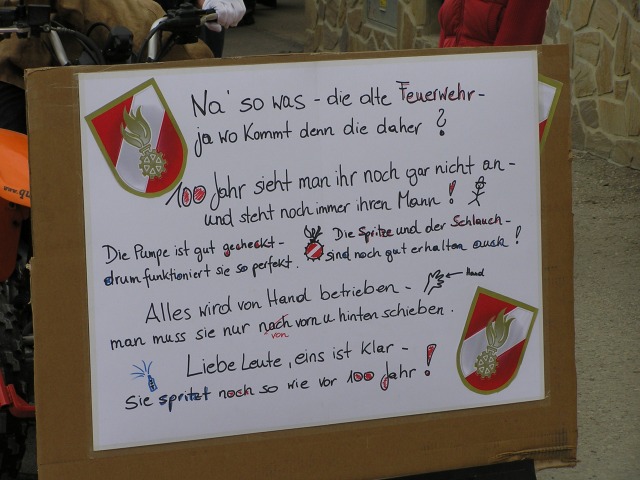 Na' so was - die alte Feuerwehr -
ja wo kommt denn die daher ?
100 Jahr sieht man ihr noch gar nicht an -
und steht noch immer ihren Mann !
Die Pumpe ist gut gecheckt -
drum funktioniert sie so perfekt .
Die Spritze und der Schlauch -
sind noch gut erhalten auch !
Alles wird von Hand betrieben -
Hand
man muss sie nur nach vorn u hinten schieben .
von
Liebe Leute , eins ist klar -
Sie spritzt noch so wie vor 100 Jahr !